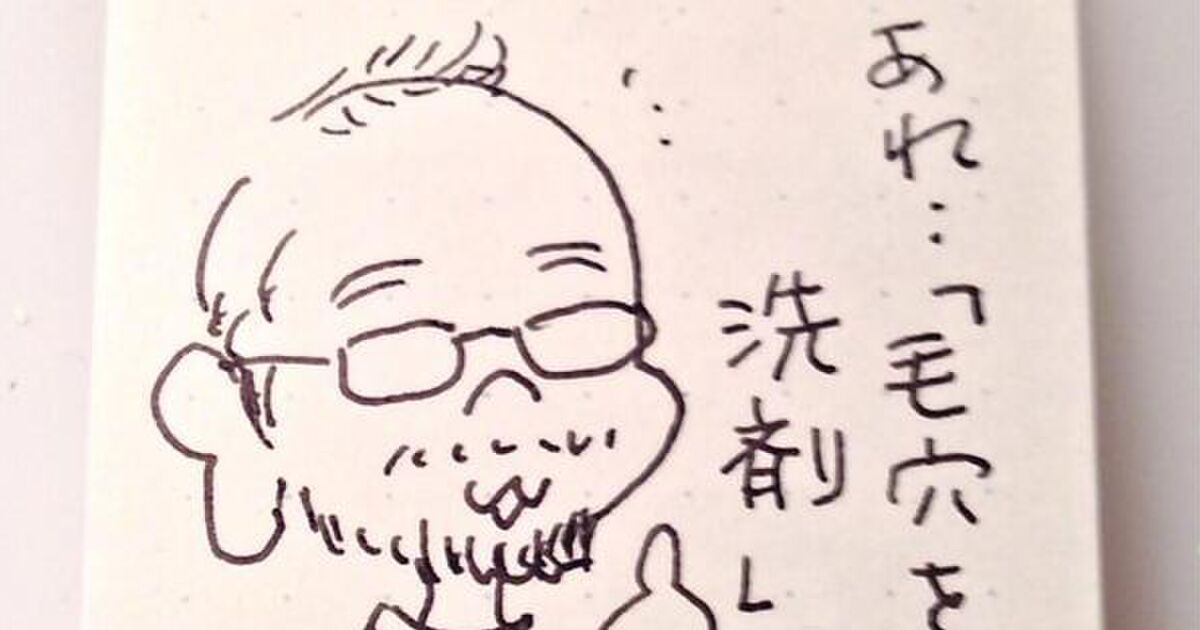 あれ…「毛穴を
洗剤」